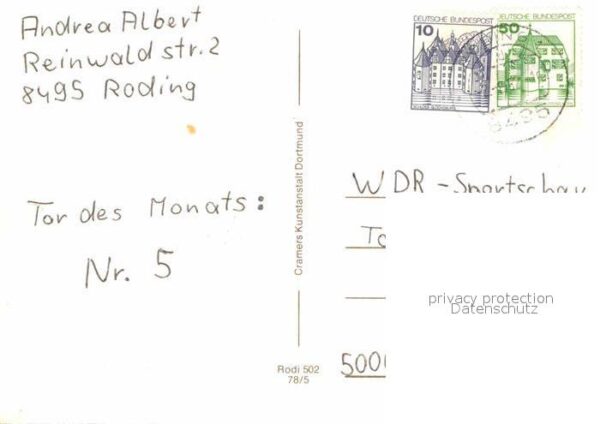 Andrea Albert
Reinwaldstr. 2
8495 Roding
Tor des Monats:
Nr. 5
10
DEUTSCHE BUNDESPOST
50
DEUTSCHE BUNDESPOST
8495
Cramers Kunstanstalt Dortmund
Rodi 502
78/5
WDR - Sportschau
To
5000
privacy protection
Datenschutz